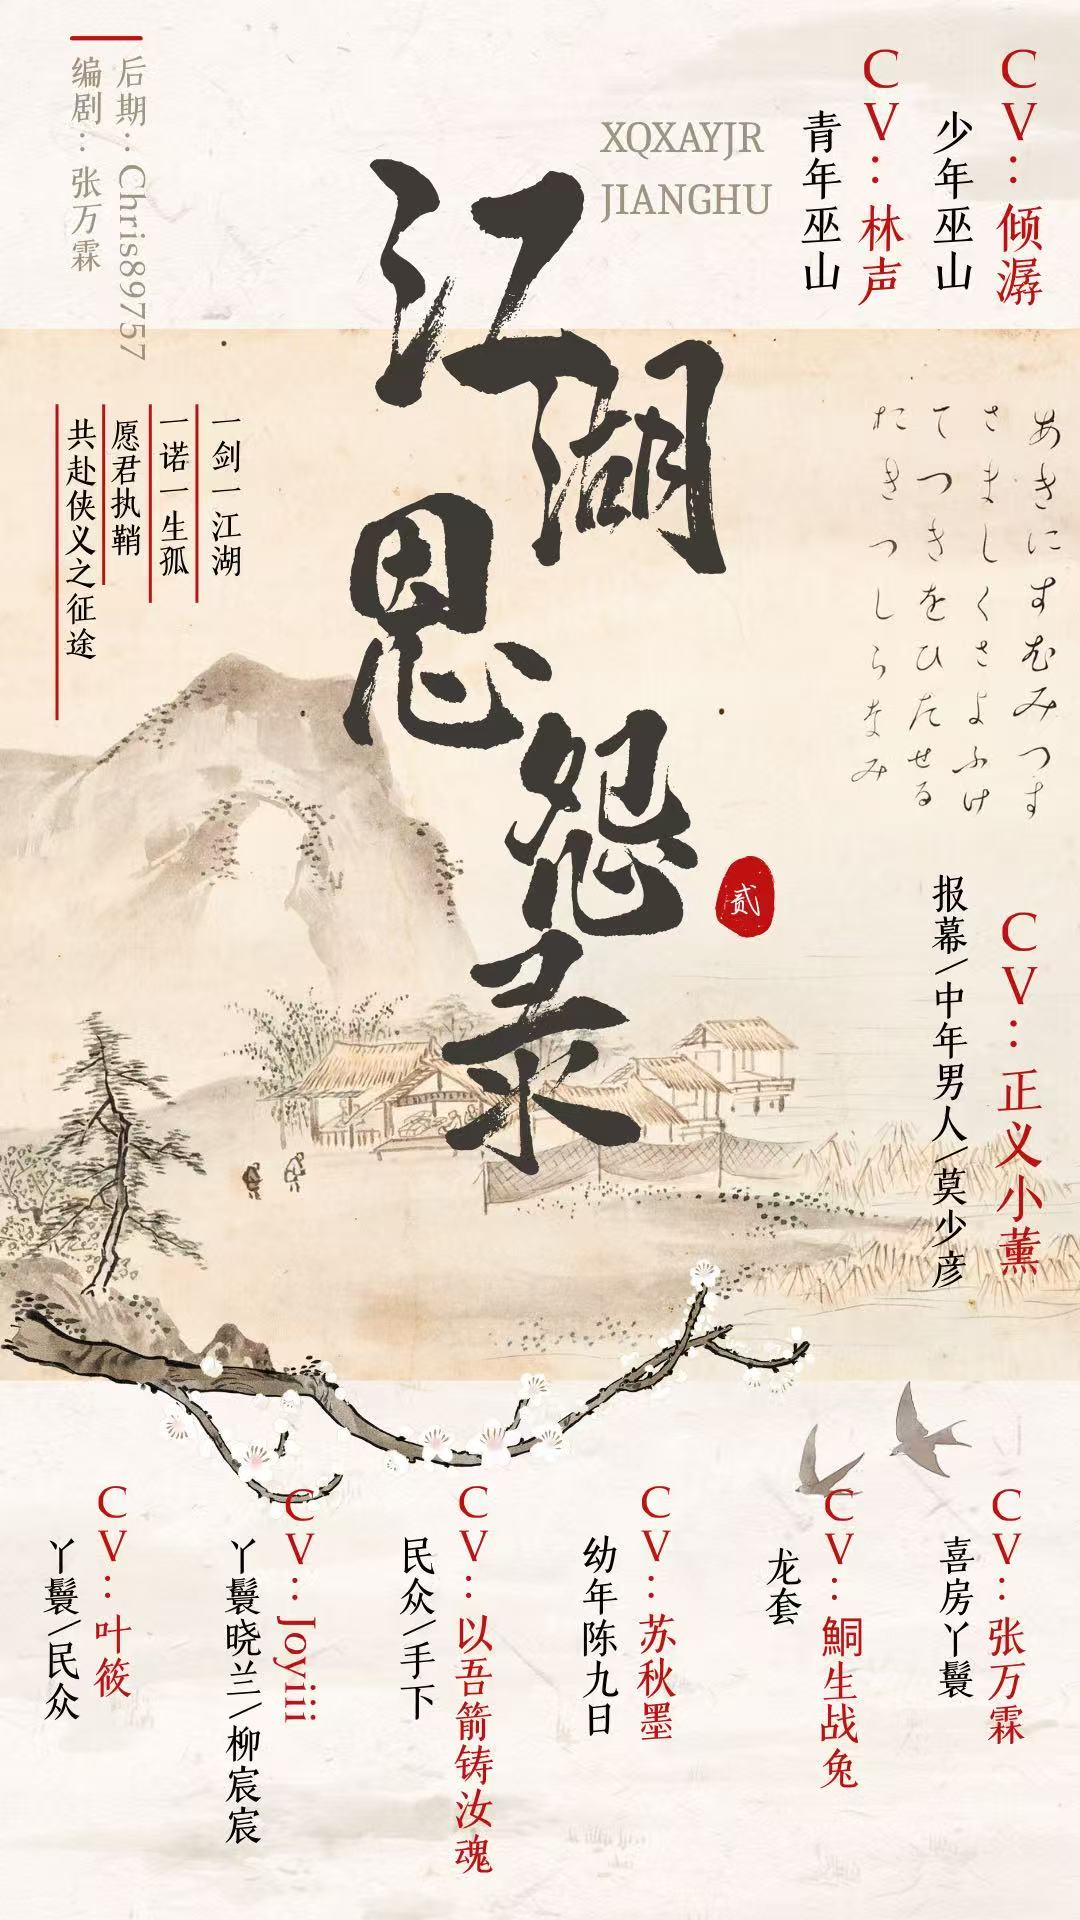 后期：Chris89757
编剧：张万霖
XQXAYJR
JIANGHU
CV：倾潺
少年巫山
CV：林声
青年巫山
江湖恩怨录
贰
一剑一江湖
一诺一生孤
愿君执鞘
共赴侠义之征途
あきにすむみつす
さましくさよふけ
てつきをひたせる
たきつしらなみ
CV：正义小薰
报幕/中年男人/莫少彦
CV：张万霖
喜房丫鬟
CV：鮦生战兔
龙套
CV：苏秋墨
幼年陈九日
CV：以吾箭铸汝魂
民众/手下
CV：Joyiii
丫鬟晓兰/柳宸宸
CV：叶筱
丫鬟/民众